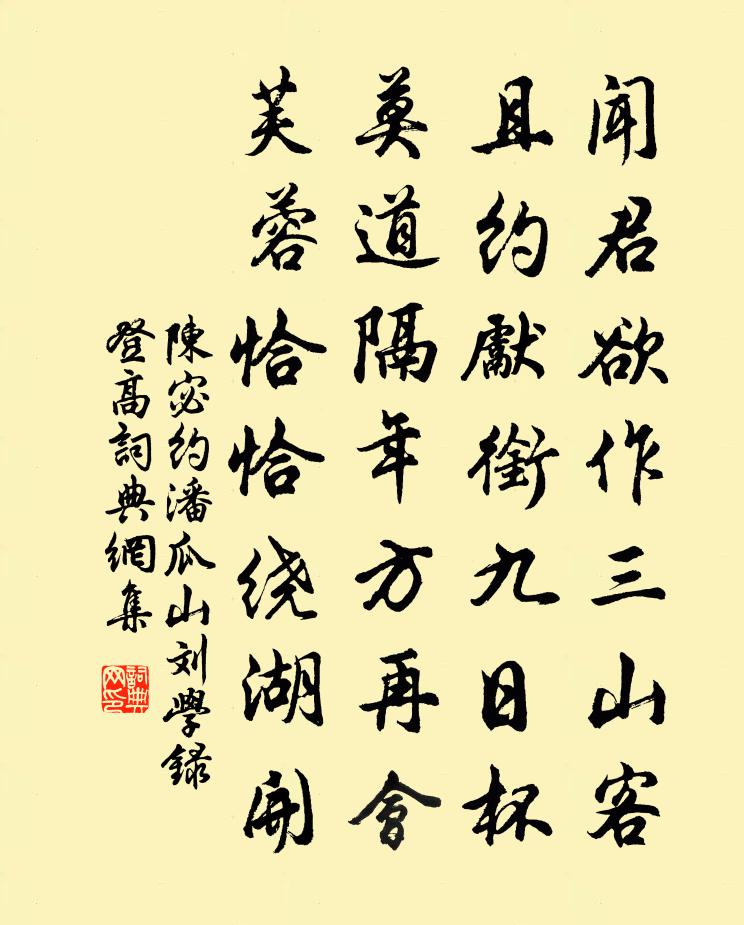 闻君欲作三山客
且约獻銜九日杯
莫道隔年方再會
芙蓉恰恰绕湖開
陳宓约潘瓜山刘學録
登高詞典網集
詞典
网印